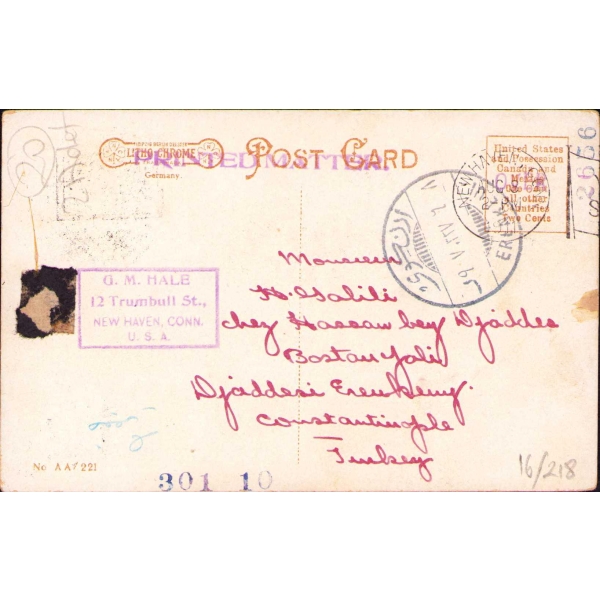 LITHO-CHROME
Germany.
POST CARD
PRINTED MATTER.
United States
and Possession
Canada and
Mexico
One Cent
All other
Countries
Two Cents
NEW HAVEN
AUG 8
2656
20
G. M. HALE
12 Trumbull St.,
NEW HAVEN, CONN.
U. S. A.
Monsieur
H. Halili
chez Hassan bey Djaddes
Bostan Joli
Djaddesi Ereukeuy
Constantinople
Turkey
No AA 221
301 10
16/218